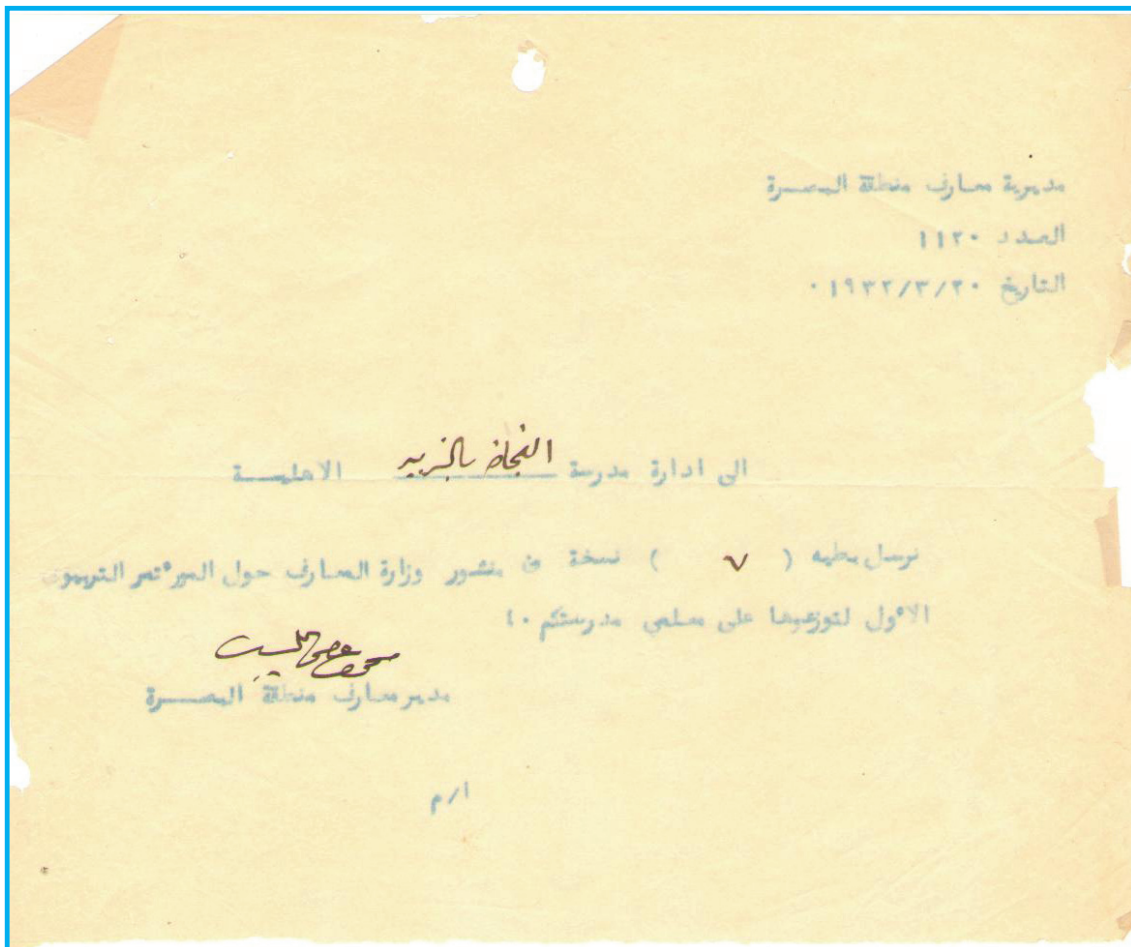 مديرية معارف منطقة البصرة
العدد ١١٢٠
التاريخ ١٩٣٢/٣/٢٠ ٠
الى ادارة مدرسة النجاة بالزبير الاهلية
نرسل بطيه ( ٧ ) نسخة من منشور وزارة المعارف حول المؤتمر التربوي
الاول لتوزيعها على معلمي مدرستكم ٠
مدير معارف منطقة البصرة
ا/م